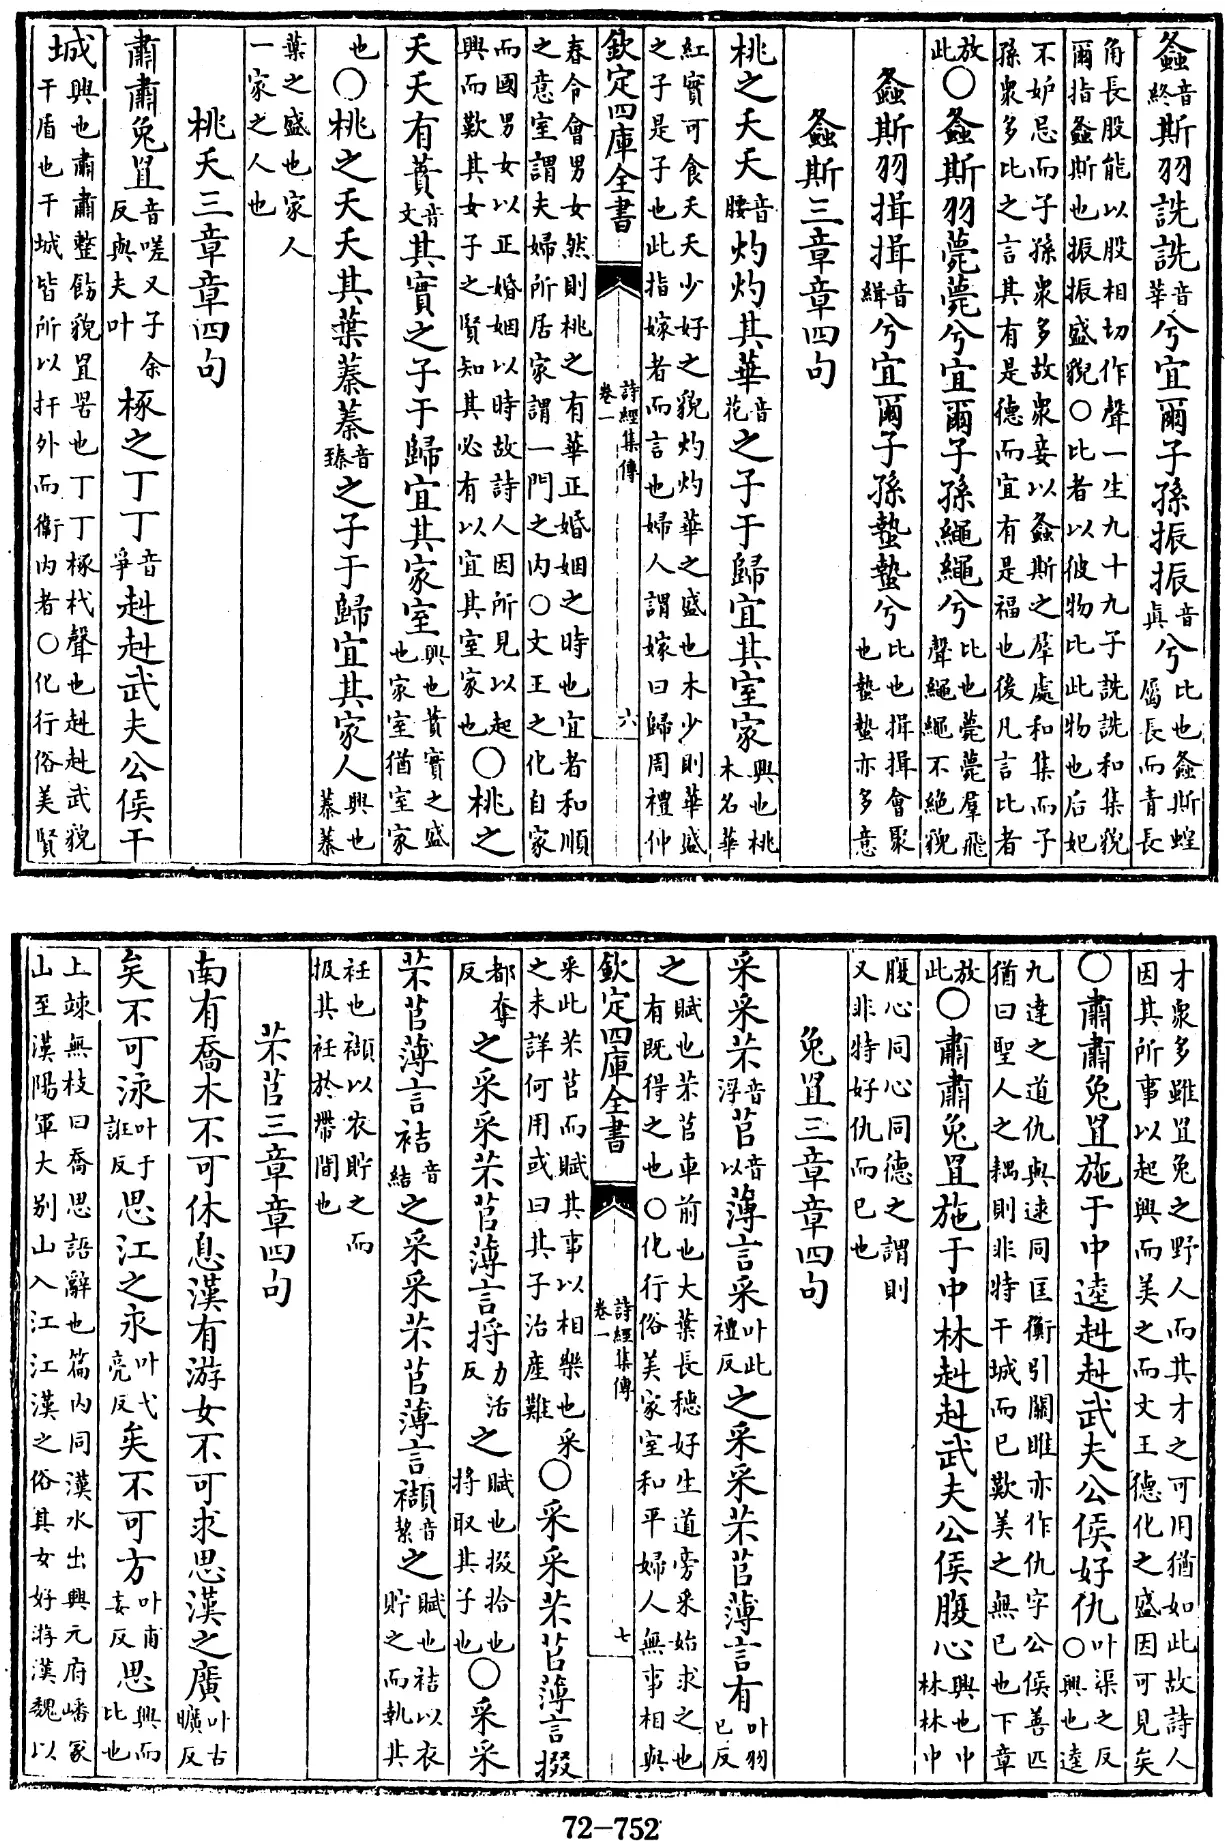 螽音終斯羽詵詵音莘兮宜爾子孫振振音眞兮比也螽斯蝗屬長而青長
角長股能以股相切作聲一生九十九子詵詵和集貌
爾指螽斯也振振盛貌○比者以彼物比此物也后妃
不妒忌而子孫衆多故衆妾以螽斯之羣處和集而子
孫衆多比之言其有是德而宜有是福也後凡言比者
放此○螽斯羽薨薨兮宜爾子孫繩繩兮比也薨薨羣飛聲繩繩不絶貌
螽斯羽揖揖音緝兮宜爾子孫蟄蟄兮比也揖揖會聚也蟄蟄亦多意
螽斯三章章四句
桃之夭夭音腰灼灼其華音花之子于歸宜其室家興也桃木名華
紅實可食夭夭少好之貌灼灼華之盛也木少則華盛
之子是子也此指嫁者而言也婦人謂嫁曰歸周禮仲
欽定四庫全書 詩經集傳 卷一 六
春令會男女然則桃之有華正婚姻之時也宜者和順
之意室謂夫婦所居家謂一門之内○文王之化自家
而國男女以正婚姻以時故詩人因所見以起
興而歎其女子之賢知其必有以宜其室家也○桃之
夭夭有蕡音文其實之子于歸宜其家室興也蕡實之盛也家室猶室家
也○桃之夭夭其葉蓁蓁音臻之子于歸宜其家人興也蓁蓁
葉之盛也家人
一家之人也
桃夭三章章四句
肅肅兔罝音嗟又子余反與夫叶椓之丁丁音爭赳赳武夫公侯干
城興也肅肅整飭貌罝罟也丁丁椓杙聲也赳赳武貌
干盾也干城皆所以扞外而衞内者○化行俗美賢
才衆多雖罝兔之野人而其才之可用猶如此故詩人
因其所事以起興而美之而文王德化之盛因可見矣
○肅肅兔罝施于中逵赳赳武夫公侯好仇叶渠之反○興也逵
九達之道仇與逑同匡衡引關雎亦作仇字公侯善匹
猶曰聖人之耦則非特干城而已歎美之無已也下章
放此○肅肅兔罝施于中林赳赳武夫公侯腹心興也中林林中
腹心同心同德之謂則
又非特好仇而已也
兔罝三章章四句
采采芣音浮苢音以薄言采叶此禮反之采采芣苢薄言有叶羽已反
之賦也芣苢車前也大葉長穗好生道旁采始求之也
有既得之也○化行俗美家室和平婦人無事相與
欽定四庫全書 詩經集傳 卷一 七
采此芣苢而賦其事以相樂也采
之未詳何用或曰其子治產難○采采芣苢薄言掇
都奪反之采采芣苢薄言捋力活反之賦也掇拾也捋取其子也○采采
芣苢薄言袺音結之采采芣苢薄言襭音絜之賦也袺以衣貯之而執其
衽也襭以衣貯之而
扱其衽於帶間也
芣苢三章章四句
南有喬木不可休息漢有游女不可求思漢之廣叶古曠反
矣不可泳叶于誑反思江之永叶弋亮反矣不可方叶甫妄反思興而比也
上竦無枝曰喬思語辭也篇内同漢水出興元府嶓冢
山至漢陽軍大别山入江江漢之俗其女好游漢魏以
72-752